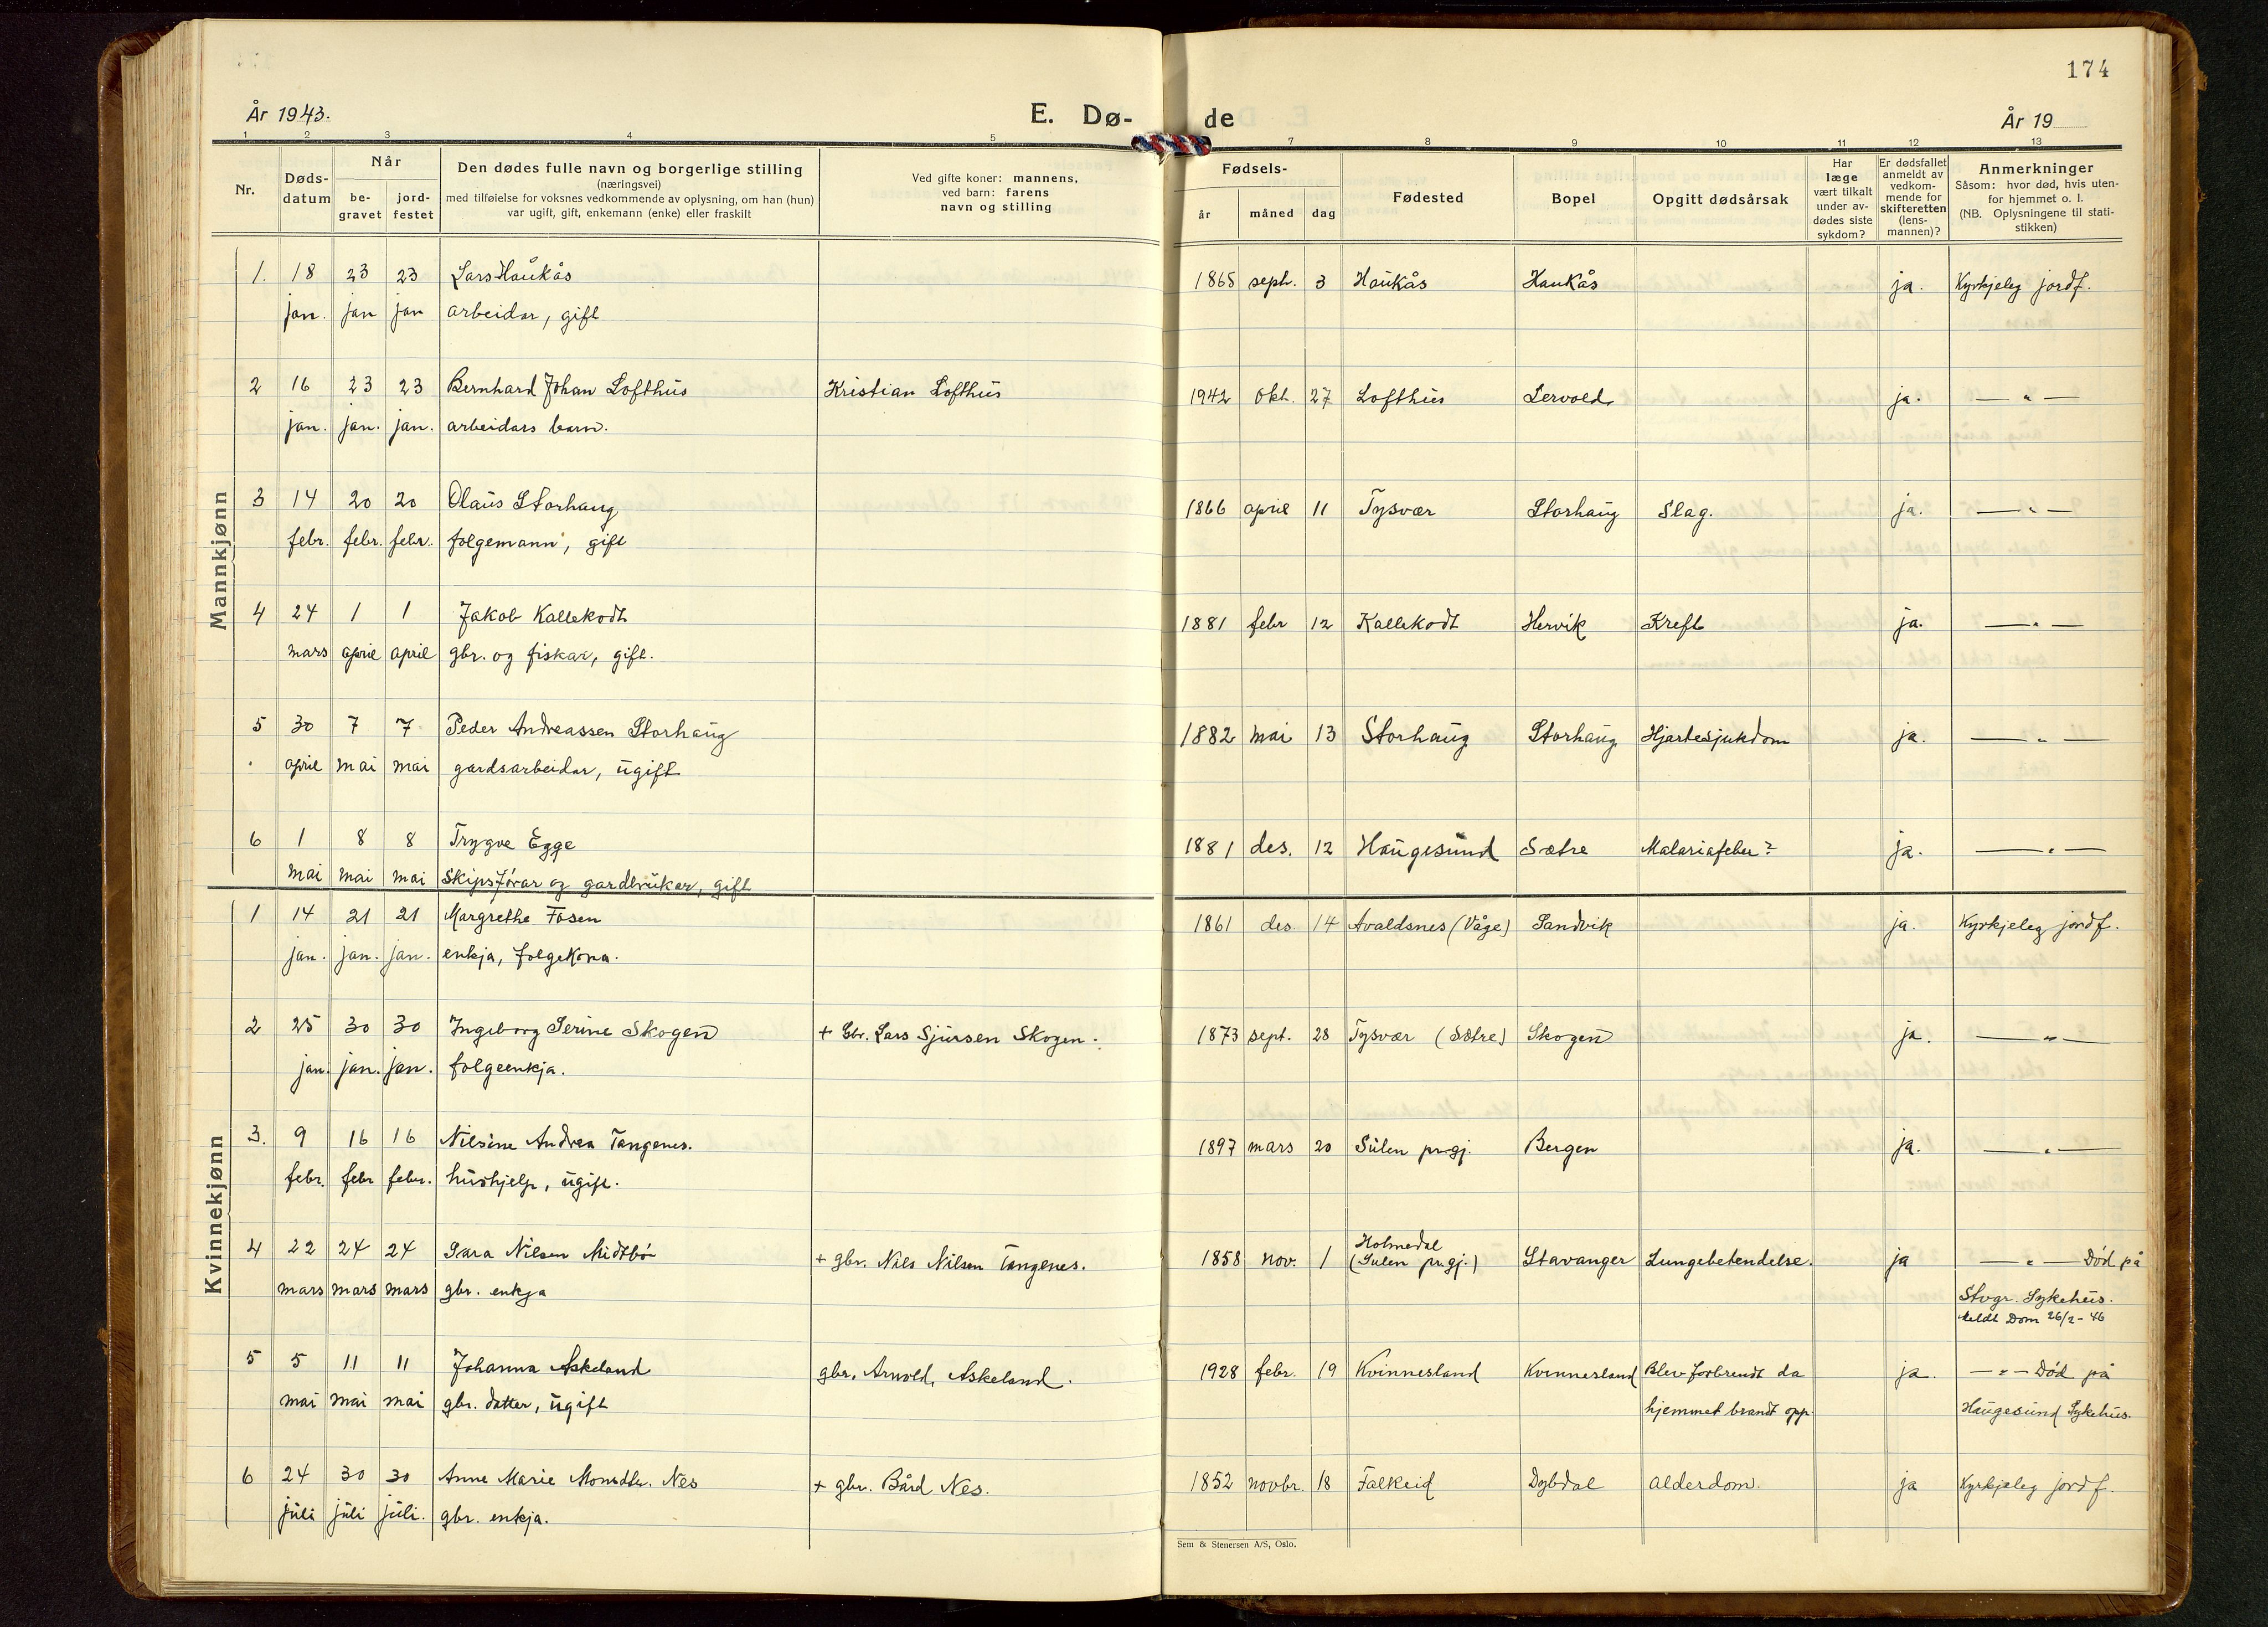 174
År 1943.
E. Dø-
de
År 19
1 2 3 4 5 7 8 9 10 11 12 13
Nr.
Døds-
datum
Når
be-
gravet
jord-
festet
Den dødes fulle navn og borgerlige stilling
(næringsvei)
med tilføielse for voksnes vedkommende av oplysning, om han (hun)
var ugift, gift, enkemann (enke) eller fraskilt
Ved gifte koner: mannens,
ved barn: farens
navn og stilling
Fødsels-
år måned dag
Fødested
Bopel
Opgitt dødsårsak
Har
læge
vært tilkalt
under av-
dødes siste
sykdom?
Er dødsfallet
anmeldt av
vedkom-
mende for
skifteretten
(lens-
mannen)?
Anmerkninger
Såsom: hvor død, hvis uten-
for hjemmet o. l.
(NB. Oplysningene til stati-
stikken)
Mannkjønn
1. 18 23 23 Lars Haukås 1865 sept. 3 Haukås Haukås ja. Kyrkjeleg jordf.
jan. jan jan arbeidar, gift
2 16 23 23 Bernhard Johan Lofthus Kristian Lofthus 1942 okt. 27 Lofthus Lervold ja. — " —
jan. jan. jan. arbeidars barn.
3 14 20 20 Olaus Storhaug 1866 april 11 Tysvær Storhaug Slag. ja. — " —
febr. febr. febr. folgemann, gift
4 24 1 1 Jakob Kallekodt 1881 febr 12 Kallekodt Hervik Kreft ja. — " —
mars april april gbr. og fiskar, gift.
5 30 7 7 Peder Andreassen Storhaug 1882 mai 13 Storhaug Storhaug Hjartesjukdom ja. — " —
april mai mai gardsarbeidar, ugift
6 1 8 8 Trygve Egge 1881 des. 12 Haugesund Sætre Malariafeber? ja. — " —
mai mai mai Skipsförar og gardbrukar, gift
Kvinnekjønn
1 14 21 21 Margrethe Fosen 1861 des. 14 Avaldsnes (Våge) Sandvik ja. Kyrkjeleg jordf.
jan. jan. jan. enkja, folgekona.
2 25 30 30 Ingeborg Serine Skogen + Gbr. Lars Sjursen Skogen. 1873 sept. 28 Tysvær (Sætre) Skogen ja. — " —
jan. jan. jan. folgeenkja.
3. 9 16 16 Nilsine Andrea Tangenes. 1897 mars 20 Sulen pr.gj. Bergen ja. — " —
febr. febr febr. hushjelp, ugift.
4 22 24 24 Sara Nilsen Midtbö + gbr. Nils Nilsen Tangenes. 1858 nov. 1 Holmedal (Sulen pr.gj.) Stavanger Lungebetendelse. ja — " — Död på
mars mars mars gbr. enkja Stvgr. Sykehus.
Meldt Dom 26/2 - 46
5 5 11 11 Johanna Askeland gbr. Arnold, Askeland. 1928 febr. 19 Kvinnesland Kvinnesland Blev forbrendt da ja. — " — Död på
mai mai mai gbr. datter, ugift hjemmet brandt opp. Haugesund Sykehus.
6 24 30 30 Anne Marie Monsdtr. Nes + gbr. Bård Nes. 1852 novbr. 18 Falkeid Dybdal alderdom. ja Kyrkjeleg jordf.
juli juli juli. gbr. enkja.
Sem & Stenersen A/S, Oslo.